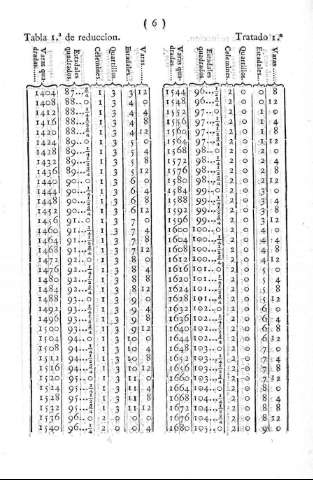 ( 6 )
Tabla 1.ª de reduccion. Tratado 1.º
Varas quadradas. Estadales quadrados. Celemines. Quartillos. Estadales. Varas. Varas quadradas. Estadales quadrados. Celemines. Quartillos. Estadales. Varas.
1404 87...3/4 1 3 3 12 1544 96...1/2 2 0 0 8
1408 88...0 1 3 4 0 1548 96...3/4 2 0 0 12
1412 88...1/4 1 3 4 4 1552 97...0 2 0 1 0
1416 88...1/2 1 3 4 8 1556 97...1/4 2 0 1 4
1420 88...3/4 1 3 4 12 1560 97...1/2 2 0 1 8
1424 89...0 1 3 5 0 1564 97...3/4 2 0 1 12
1428 89...1/4 1 3 5 4 1568 98...0 2 0 2 0
1432 89...1/2 1 3 5 8 1572 98...1/4 2 0 2 4
1436 89...3/4 1 3 5 12 1576 98...1/2 2 0 2 8
1440 90...0 1 3 6 0 1580 98...3/4 2 0 2 12
1444 90...1/4 1 3 6 4 1584 99...0 2 0 3 0
1448 90...1/2 1 3 6 8 1588 99...1/4 2 0 3 4
1452 90...3/4 1 3 6 12 1592 99...1/2 2 0 3 8
1456 91...0 1 3 7 0 1596 99...3/4 2 0 3 12
1460 91...1/4 1 3 7 4 1600 100...0 2 0 4 0
1464 91...1/2 1 3 7 8 1604 100...1/4 2 0 4 4
1468 91...3/4 1 3 7 12 1608 100...1/2 2 0 4 8
1472 92...0 1 3 8 0 1612 100...3/4 2 0 4 12
1476 92...1/4 1 3 8 4 1616 101...0 2 0 5 0
1480 92...1/2 1 3 8 8 1620 101...1/4 2 0 5 4
1484 92...3/4 1 3 8 12 1624 101...1/2 2 0 5 8
1488 93...0 1 3 9 0 1628 101...3/4 2 0 5 12
1492 93...1/4 1 3 9 4 1632 102...0 2 0 6 0
1496 93...1/2 1 3 9 8 1636 102...1/4 2 0 6 4
1500 93...3/4 1 3 9 12 1640 102...1/2 2 0 6 8
1504 94...0 1 3 10 0 1644 102...3/4 2 0 6 12
1508 94...1/4 1 3 10 4 1648 103...0 2 0 7 0
1512 94...1/2 1 3 10 8 1652 103...1/4 2 0 7 4
1516 94...3/4 1 3 10 12 1656 103...1/2 2 0 7 8
1520 95...0 1 3 11 0 1660 103...3/4 2 0 7 12
1524 95...1/4 1 3 11 4 1664 104...0 2 0 8 0
1528 95...1/2 1 3 11 8 1668 104...1/4 2 0 8 4
1532 95...3/4 1 3 11 12 1672 104...1/2 2 0 8 8
1536 96...0 2 0 0 0 1676 104...3/4 2 0 8 12
1540 96...1/4 2 0 0 4 1680 105...0 2 0 9 0